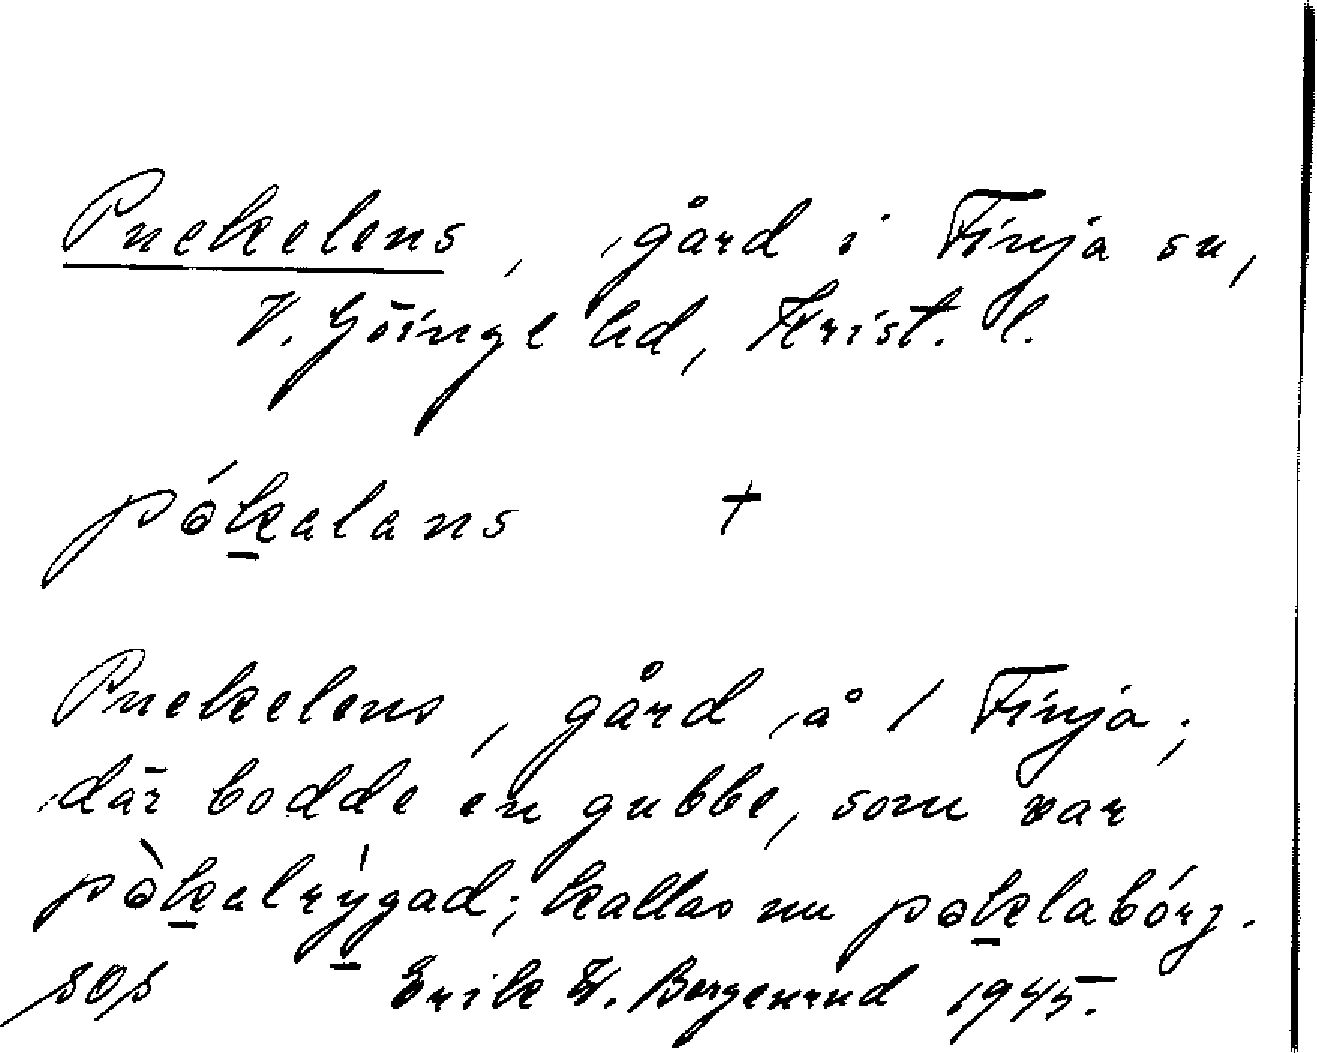 Puckelens, gård i Finja sn,
V. Göinge hd, Krist. l.
pókalans +
Puckelens, gård å 1 Finja;
där bodde en gubbe, som var
pòkalrýgad; kallas nu poklabórj.
sOs Erik W. Bergenrud 1945.